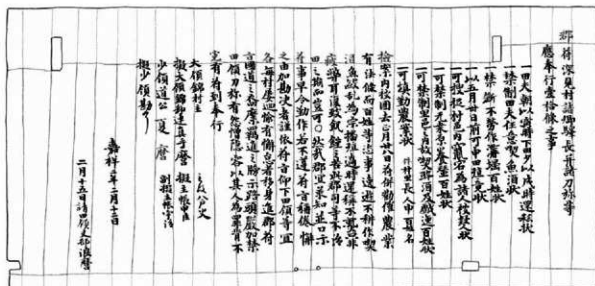 郡符深見村諸郷驛長并諸刀祢等
應奉行壹拾條之事
一田夫朝以寅時下田夕以戌時還私状
一禁制田夫任意喫魚酒状
一禁断不労作溝堰百姓状
一以五月卅日前可申田殖竟状
一可捜捉村邑内竄宕為諸人被疑人状
一可禁制无桑原養蚕百姓状
一可禁制里邑之内故喫酔酒及戯逸百姓状
一可填勤農業状 件村里長人申百姓名
検案内被國去正月廿八日符併勧催農業
有法條而百姓等恣事逸遊不耕作喫
酒魚殴乱為宗播殖過時還称不熟只非
疲弊耳復致飢饉之苦此郡司等不治
田之期而豈可○然哉郡宜承知並口示
符事早令勤作若不遵符旨称倦懈
之由加勘決者謹依符旨仰下田領等宜
各毎村屡廻愉有懈怠者移身進郡符
旨國道之裔縻羈進之牓示路頭厳加禁
田領刀祢有怨憎隠容以其人為罪背不
寛宥符到奉行
大領錦村主 主政八戸史
擬大領錦部連真手麿 擬主帳甲臣
少領道公 夏麿 副擬主帳宇治
擬少領勘了
嘉祥二年二月十二日
二月十五日請田領丈部浪麿